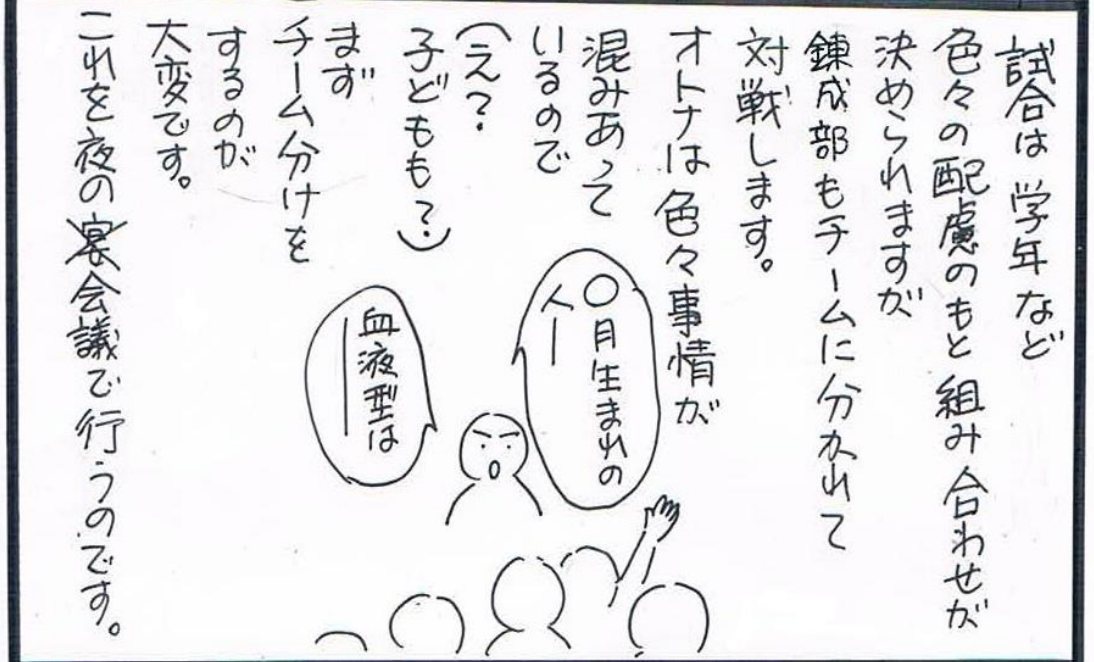 試合は学年など
色々の配慮のもと組み合わせが
決められますが
錬成部もチームに分かれて
対戦します。
オトナは色々事情が
混みあって
いるので
(え?
子どもも?)
まず
チーム分けを
するのが
大変です。
これを夜の宴会議で行うのです。
〇月生まれの
人ー
血液型は
ー